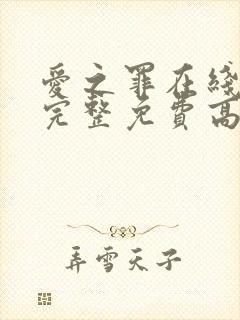 愛之罪在綫
完整免費高
弄雪天子